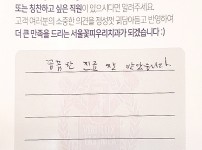 또는 칭찬하고 싶은 직원이 있으시다면 알려주세요.
고객 여러분의 소중한 의견을 정성껏 귀담아듣고 반영하여
더 큰 만족을 드리는 서울꽃피우리치과가 되겠습니다 :)
꼼꼼한 진료 잘 받았습니다.